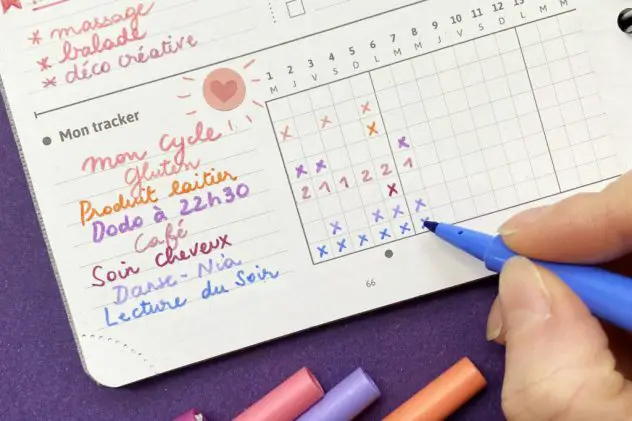 * massage
* balade
* déco créative
Mon tracker
1 2 3 4 5 6 7 8 9 10 11 12 13
M J V S D L M M J V S D L
mon cycle !!
Gluten x x x
Produit laitier x
Dodo à 22h30 x x x
Café 2 1 1 2 2 1
Soin cheveux x
Danse-Nia x x x x
Lecture du Soir x x x x x x
66